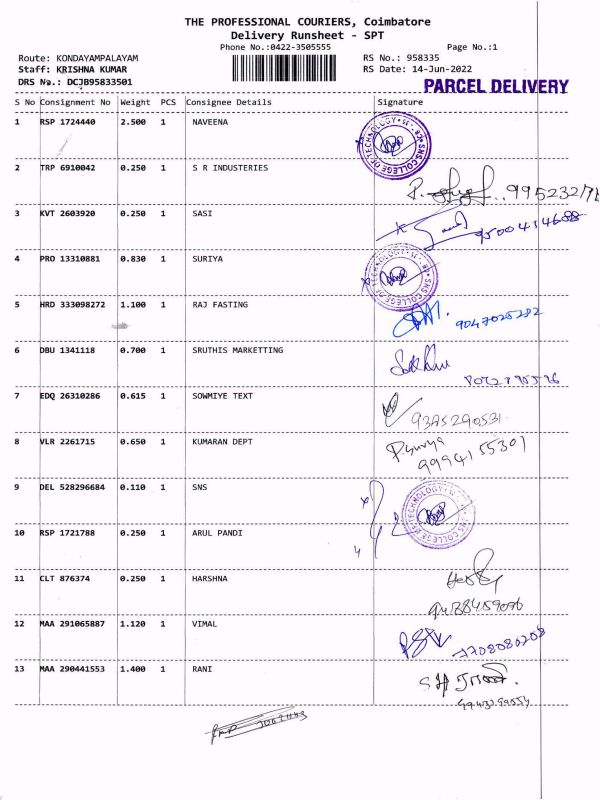 THE PROFESSIONAL COURIERS, Coimbatore
Delivery Runsheet - SPT
Phone No.:0422-3505555 Page No.:1
Route: KONDAYAMPALAYAM RS No.: 958335
Staff: KRISHNA KUMAR RS Date: 14-Jun-2022
DRS No.: DCJB95833501 PARCEL DELIVERY
S No Consignment No Weight PCS Consignee Details Signature
1 RSP 1724440 2.500 1 NAVEENA
SNS COLLEGE OF TECHNOLOGY
2 TRP 6910042 0.250 1 S R INDUSTERIES
3 KVT 2603920 0.250 1 SASI
9500414688
4 PRO 13310881 0.830 1 SURIYA
SNS COLLEGE OF TECHNOLOGY
5 HRD 333098272 1.100 1 RAJ FASTING
9047025292
6 DBU 1341118 0.700 1 SRUTHIS MARKETTING
7 EDQ 26310286 0.615 1 SOWMIYE TEXT
8 VLR 2261715 0.650 1 KUMARAN DEPT
P.Surya
9994155301
9 DEL 528296684 0.110 1 SNS
SNS COLLEGE OF TECHNOLOGY
10 RSP 1721788 0.250 1 ARUL PANDI
11 CLT 876374 0.250 1 HARSHNA
9488459096
12 MAA 291065887 1.120 1 VIMAL
7708080208
13 MAA 290441553 1.400 1 RANI